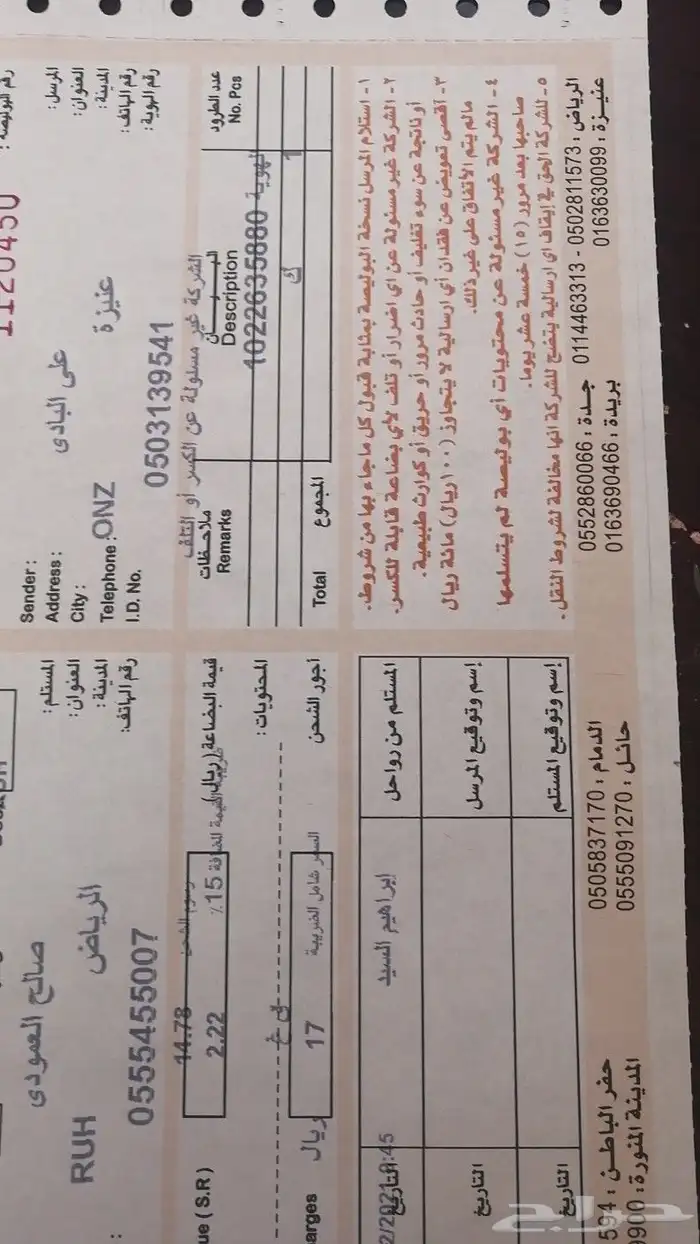 رقم البوليصة :
1120450
المرسل:
على البادى
Sender :
العنوان:
Address :
المدينة:
عنيزة
ONZ
City :
رقم الهاتف:
0503139541
Telephone :
رقم الهوية:
I.D. No.
الشركة غير مسئولة عن الكسر أو التلف
عدد الطرود
No. Pcs
البيـــــان
Description
ملاحظات
Remarks
الهوية 1022635880
1
ك
المجموع
Total
المستلم:
صالح العمودى
العنوان:
المدينة:
الرياض
RUH
رقم الهاتف:
0555455007
14.78
رسوم الشحن
قيمة البضاعة (ريال)
ue ( S.R )
2.22
15٪
القيمة المضافة
المحتويات:
ك غ
اجور الشحن
السعر شامل الضريبة
17
ريال
arges
١- استلام المرسل نسخة البوليصة بمثابة قبول كل ماجاء بها من شروط.
٢- الشركة غير مسئولة عن اي اضرار أو تلف لأي بضاعة قابلة للكسر.
أو ناتجة عن سوء تغليف أو حادث مرور أو حريق أو كوارث طبيعية.
٣- أقصى تعويض عن فقدان أي ارسالية لا يتجاوز (١٠٠ ريال) مائة ريال
مالم يتم الأتفاق على غير ذلك.
٤- الشركة غير مسئولة عن محتويات أي بوليصة لم يتسلمها
صاحبها بعد مرور (١٥) خمسة عشر يوما.
٥- للشركة الحق في إيقاف اي ارسالية يتضح للشركة انها مخالفة لشروط النقل.
المستلم من رواحل
ابراهيم السيد
التاريخ
2/2021 :45
إسم وتوقيع المرسل
التاريخ
إسم وتوقيع المستلم
التاريخ
الرياض : 0502811573 - 0114463313 جـدة : 0552860066
الدمام : 0505837170
حفر الباطـن : 594
عنيـزة : 0163630099 بريدة : 0163690466
حائـل : 0555091270
المدينة المنورة : 9900
حراج